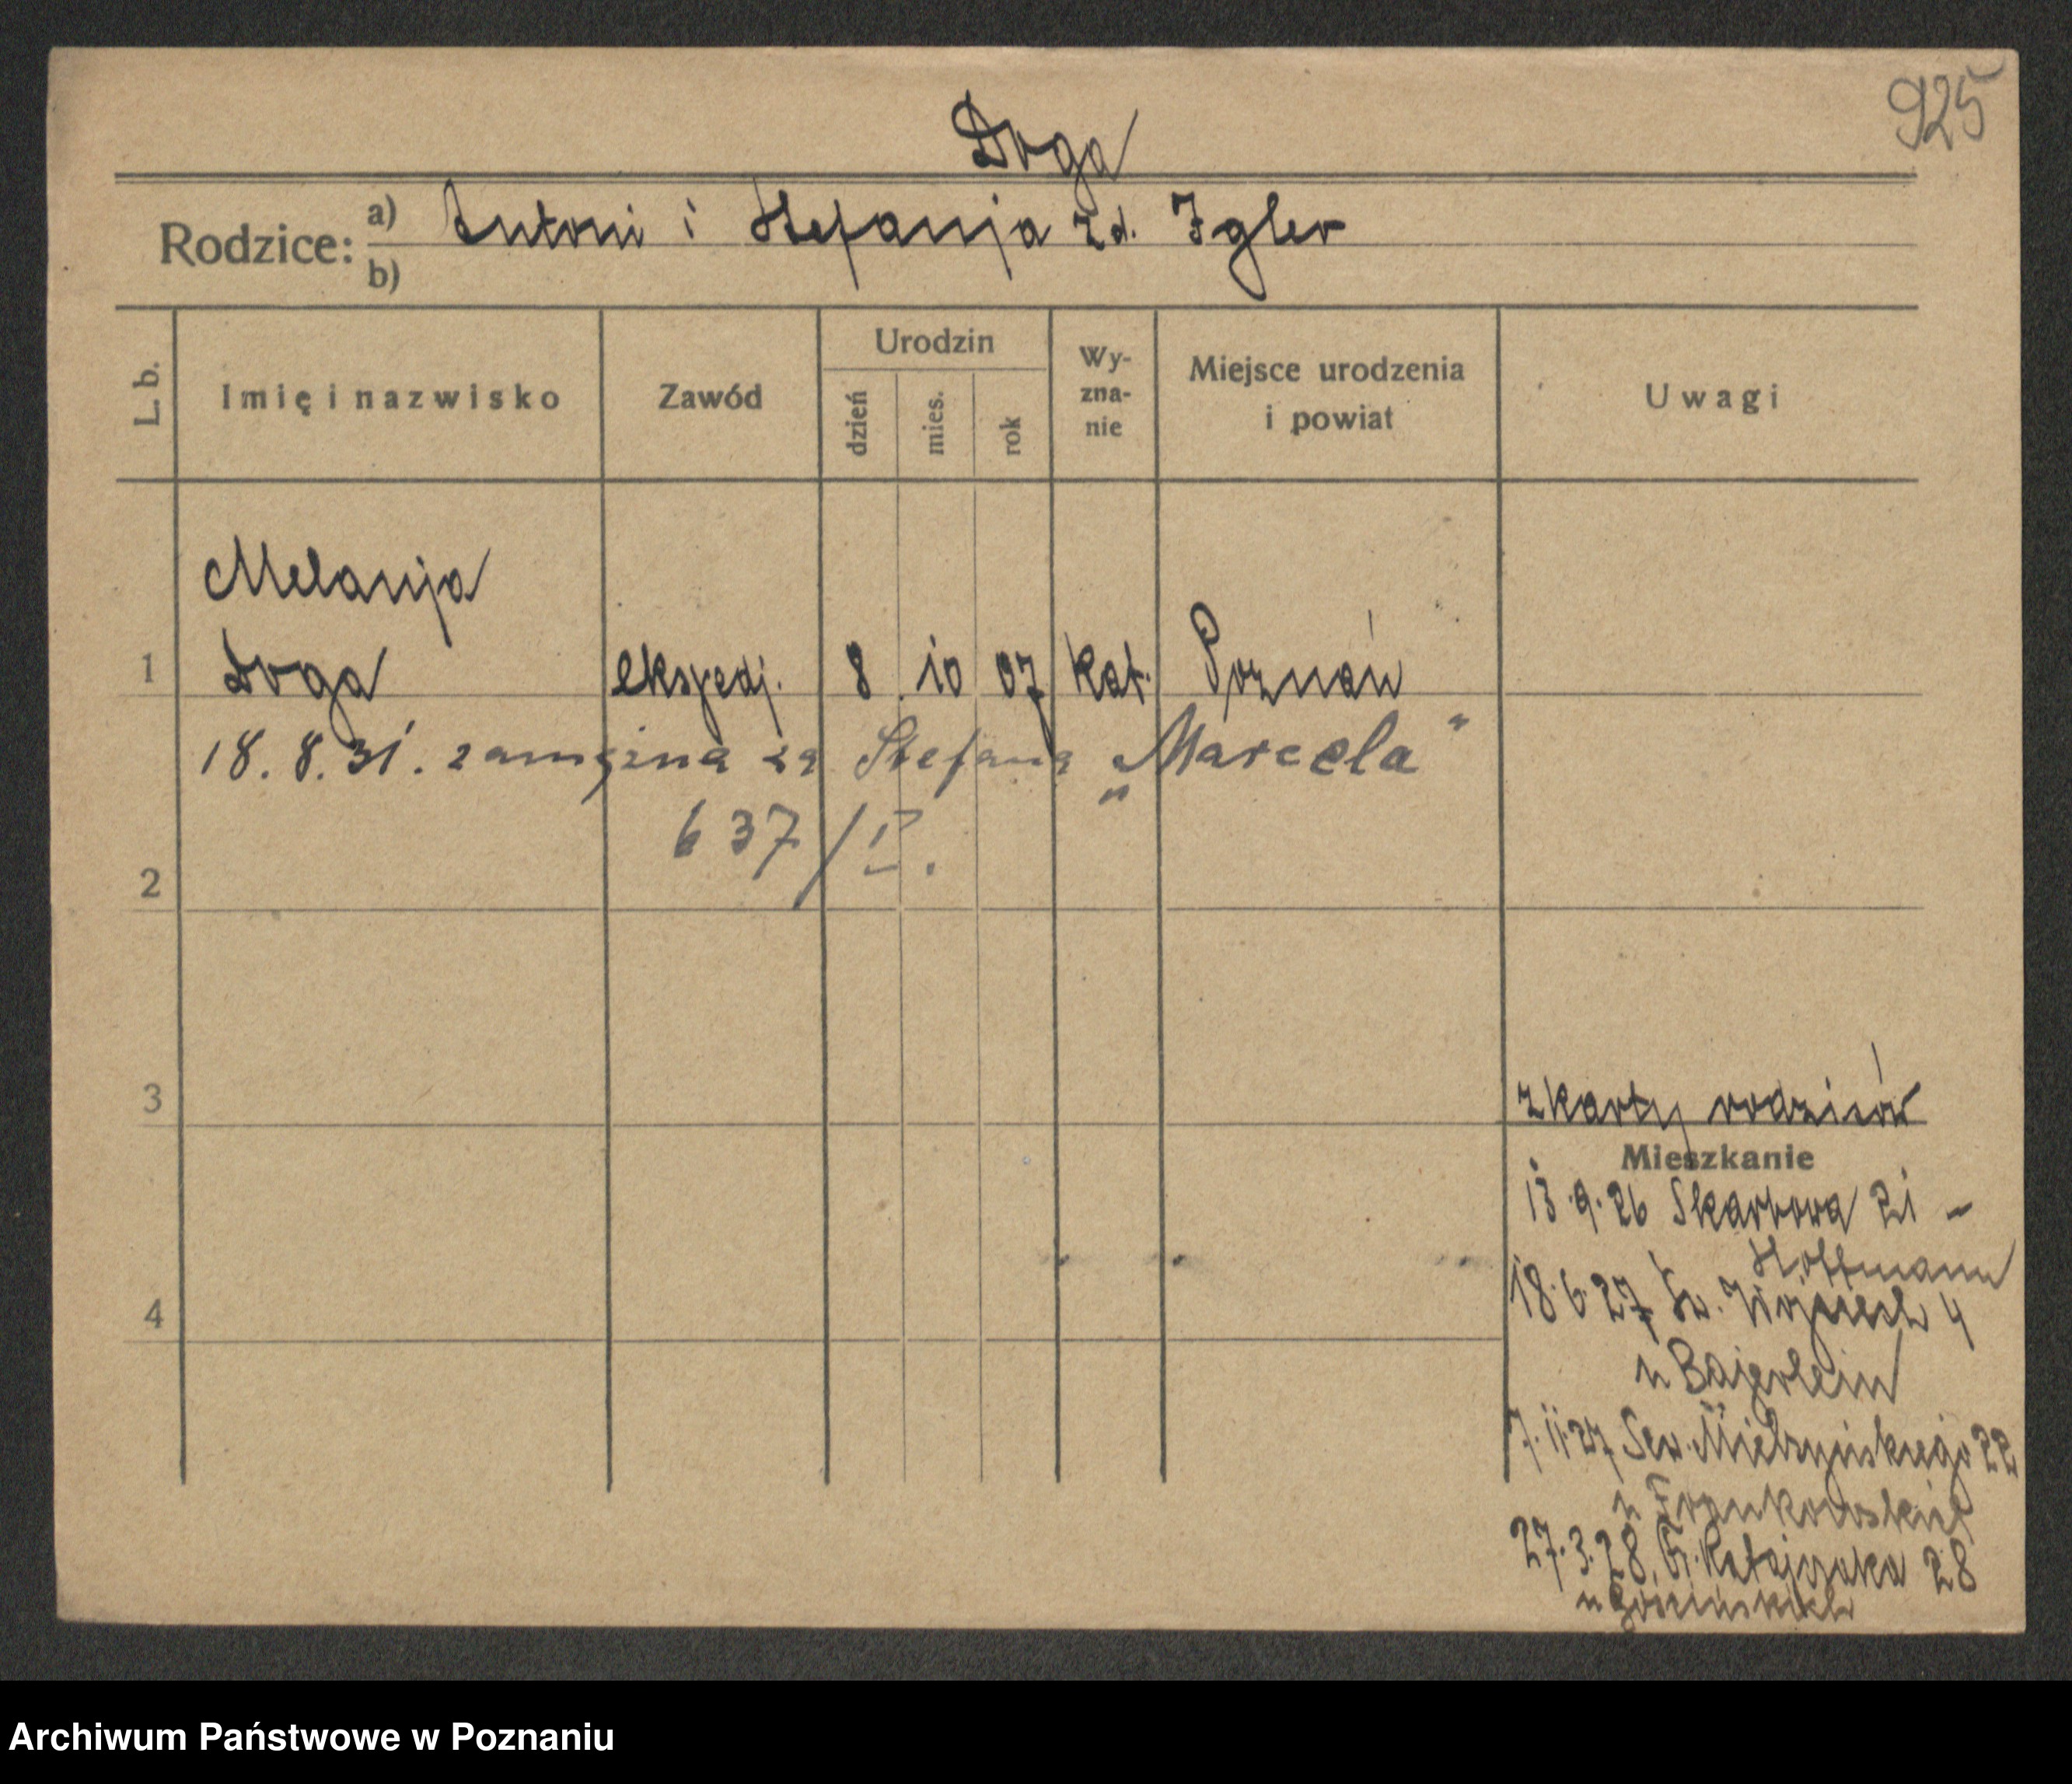 925
Doga
Rodzice: a) Antoni i Stefanja zd. Igler
b)
L. b. Imię i nazwisko Zawód Urodzin dzień mies. rok Wyznanie Miejsce urodzenia i powiat Uwagi
Melanja
1 Doga ekspedj. 8 10 07 kat. Poznań
18. 8. 31. zamężna za Stefana „Marcela"
637/
2
3
z karty rodziców
Mieszkanie
13.9.26 Skarbowa 21 -
Hoffmann
4
18.6.27 Św. Wojciech 4
u Bajerlein
7.11.27 Sew. Mielżyńskiego 22
u Frankowskiej
27.3.28. Fr. Ratajczaka 28
Archiwum Państwowe w Poznaniu